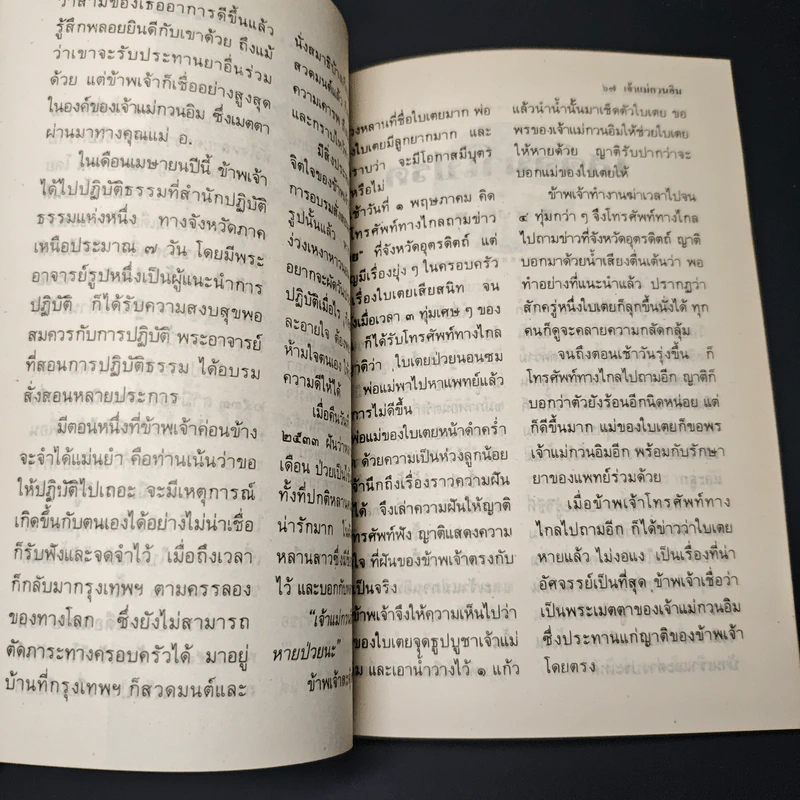 ว่าสามีของเธออาการดีขึ้นแล้ว
รู้สึกพลอยยินดีกับเขาด้วย ถึงแม้
ว่าเขาจะรับประทานยาอื่นร่วม
ด้วย แต่ข้าพเจ้าก็เชื่ออย่างสูงสุด
ในองค์ของเจ้าแม่กวนอิม ซึ่งเมตตา
ผ่านมาทางคุณแม่ อ.
ในเดือนเมษายนปีนี้ ข้าพเจ้า
ได้ไปปฏิบัติธรรมที่สำนักปฏิบัติ
ธรรมแห่งหนึ่ง ทางจังหวัดภาค
เหนือประมาณ ๗ วัน โดยมีพระ
อาจารย์รูปหนึ่งเป็นผู้แนะนำการ
ปฏิบัติ ก็ได้รับความสงบสุขพอ
สมควรกับการปฏิบัติ พระอาจารย์
ที่สอนการปฏิบัติธรรม ได้อบรม
สั่งสอนหลายประการ
มีตอนหนึ่งที่ข้าพเจ้าค่อนข้าง
จะจำได้แม่นยำ คือท่านเน้นว่าขอ
ให้ปฏิบัติไปเถอะ จะมีเหตุการณ์
เกิดขึ้นกับตนเองได้อย่างไม่น่าเชื่อ
ก็รับฟังและจดจำไว้ เมื่อถึงเวลา
ก็กลับมากรุงเทพฯ ตามครรลอง
ของทางโลก ซึ่งยังไม่สามารถ
ตัดภาระทางครอบครัวได้ มาอยู่
บ้านที่กรุงเทพฯ ก็สวดมนต์และ
นั่งสมาธิ
สวดมนต์แล้ว
ความเคารพ
และกราบไหว้
มีสิ่ง
จิตใจของข้า
การอบรมสั่ง
รูปนั้นแล้ว
ง่วงเหงาหาว
อยากจะผัดวัน
ปฏิบัติเมื่อไร
ละอายใจ ต้อง
ห้ามใจตนเอง
ความดีให้ได้
เมื่อคืนวันที่
๒๕๓๓ ฝันว่า
เดือน ป่วยเป็น
ทั้งที่ปกติหลาน
น่ารักมาก
หลานสาวซึ่ง
ไว้ และบอกกับ
"เจ้าแม่กวน
หายป่วยนะ"
ข้าพเจ้า
๖๗ เจ้าแม่กวนอิม
วงหลานที่ชื่อใบเตยมาก พ่อ
ใบเตยมีลูกยากมาก และ
ราบว่า จะมีโอกาสมีบุตร
หรือไม่
เช้าวันที่ ๑ พฤษภาคม คิด
โทรศัพท์ทางไกลถามข่าว
ที่จังหวัดอุตรดิตถ์ แต่
มีเรื่องยุ่ง ๆ ในครอบครัว
เรื่องใบเตยเสียสนิท จน
เมื่อเวลา ๓ ทุ่มเศษ ๆ ของ
ก็ได้รับโทรศัพท์ทางไกล
ญาติว่า ใบเตยป่วยนอนซม
พ่อแม่พาไปหาแพทย์แล้ว
การไม่ดีขึ้น
พ่อแม่ของใบเตยหน้าดำคร่ำ
ด้วยความเป็นห่วงลูกน้อย
จ้านึกถึงเรื่องราวความฝัน
ได้ จึงเล่าความฝันให้ญาติ
ทรศัพท์ฟัง ญาติแสดงความ
ใจ ที่ฝันของข้าพเจ้าตรงกับ
เป็นจริง
ข้าพเจ้าจึงให้ความเห็นไปว่า
ของใบเตยจุดธูปบูชาเจ้าแม่
ม และเอาน้ำวางไว้ ๑ แก้ว
แล้วนำน้ำนั้นมาเช็ดตัวใบเตย ขอ
พรของเจ้าแม่กวนอิมให้ช่วยใบเตย
ให้หายด้วย ญาติรับปากว่าจะ
บอกแม่ของใบเตยให้
ข้าพเจ้าทำงานฆ่าเวลาไปจน
๔ ทุ่มกว่า ๆ จึงโทรศัพท์ทางไกล
ไปถามข่าวที่จังหวัดอุตรดิตถ์ ญาติ
บอกมาด้วยน้ำเสียงตื่นเต้นว่า พอ
ทำอย่างที่แนะนำแล้ว ปรากฏว่า
สักครู่หนึ่งใบเตยก็ลุกขึ้นนั่งได้ ทุก
คนก็ดูจะคลายความกลัดกลุ้ม
จนถึงตอนเช้าวันรุ่งขึ้น ก็
โทรศัพท์ทางไกลไปถามอีก ญาติก็
บอกว่าตัวยังร้อนอีกนิดหน่อย แต่
ก็ดีขึ้นมาก แม่ของใบเตยก็ขอพร
เจ้าแม่กวนอิมอีก พร้อมกับรักษา
ยาของแพทย์ร่วมด้วย
เมื่อข้าพเจ้าโทรศัพท์ทาง
ไกลไปถามอีก ก็ได้ข่าวว่าใบเตย
หายแล้ว ไม่งอแง เป็นเรื่องที่น่า
อัศจรรย์เป็นที่สุด ข้าพเจ้าเชื่อว่า
เป็นพระเมตตาของเจ้าแม่กวนอิม
ซึ่งประทานแก่ญาติของข้าพเจ้า
โดยตรง